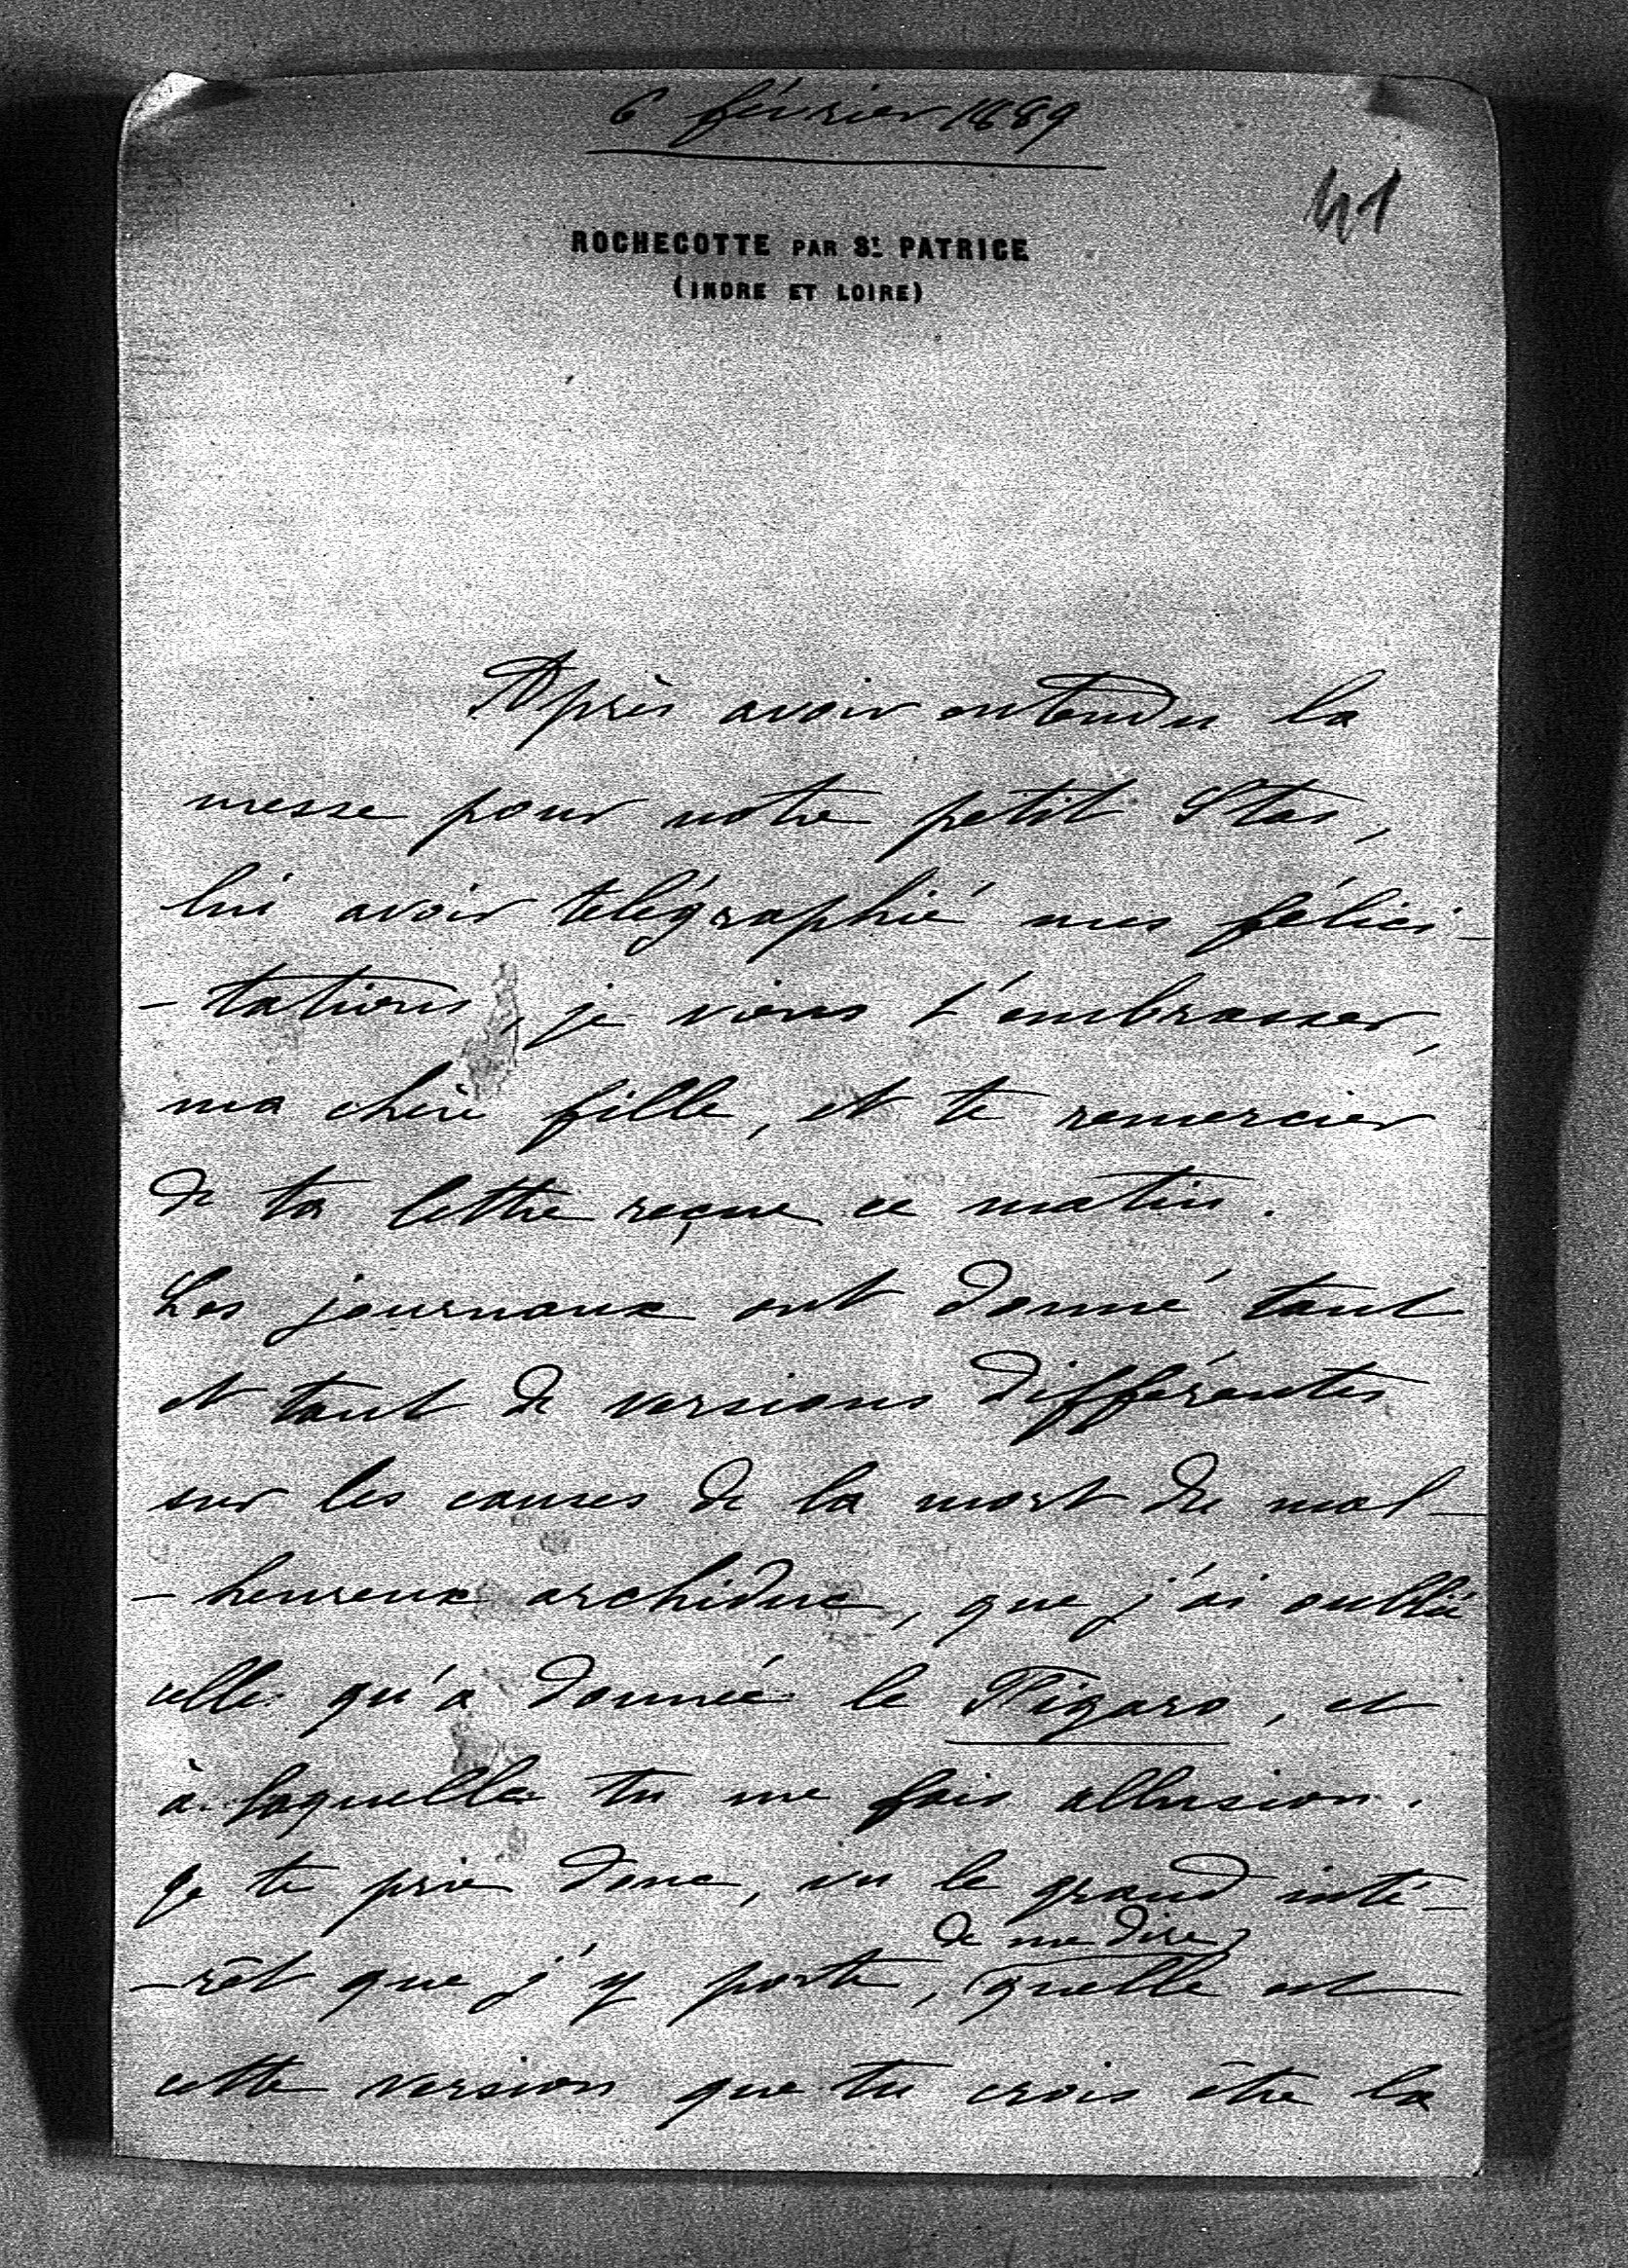 6 février 1889
41
ROCHECOTTE PAR St PATRICE
(INDRE ET LOIRE)
Après avoir entendu la
messe pour notre petit Stas,
lui avoir télégraphié mes félici-
-tations, je viens t'embrasser,
ma chère fille, et te remercier
de ta lettre reçue ce matin.
Les journaux ont donné tant
et tant de versions différentes
sur les causes de la mort du mal-
-heureux archiduc, que j'ai oublié
celle qu'a donnée le Figaro, et
à laquelle tu me fais allusion.
Je te prie donc, vu le grand inté-
de me dire
-rêt que j'y porte, quelle est
cette version que tu crois être la